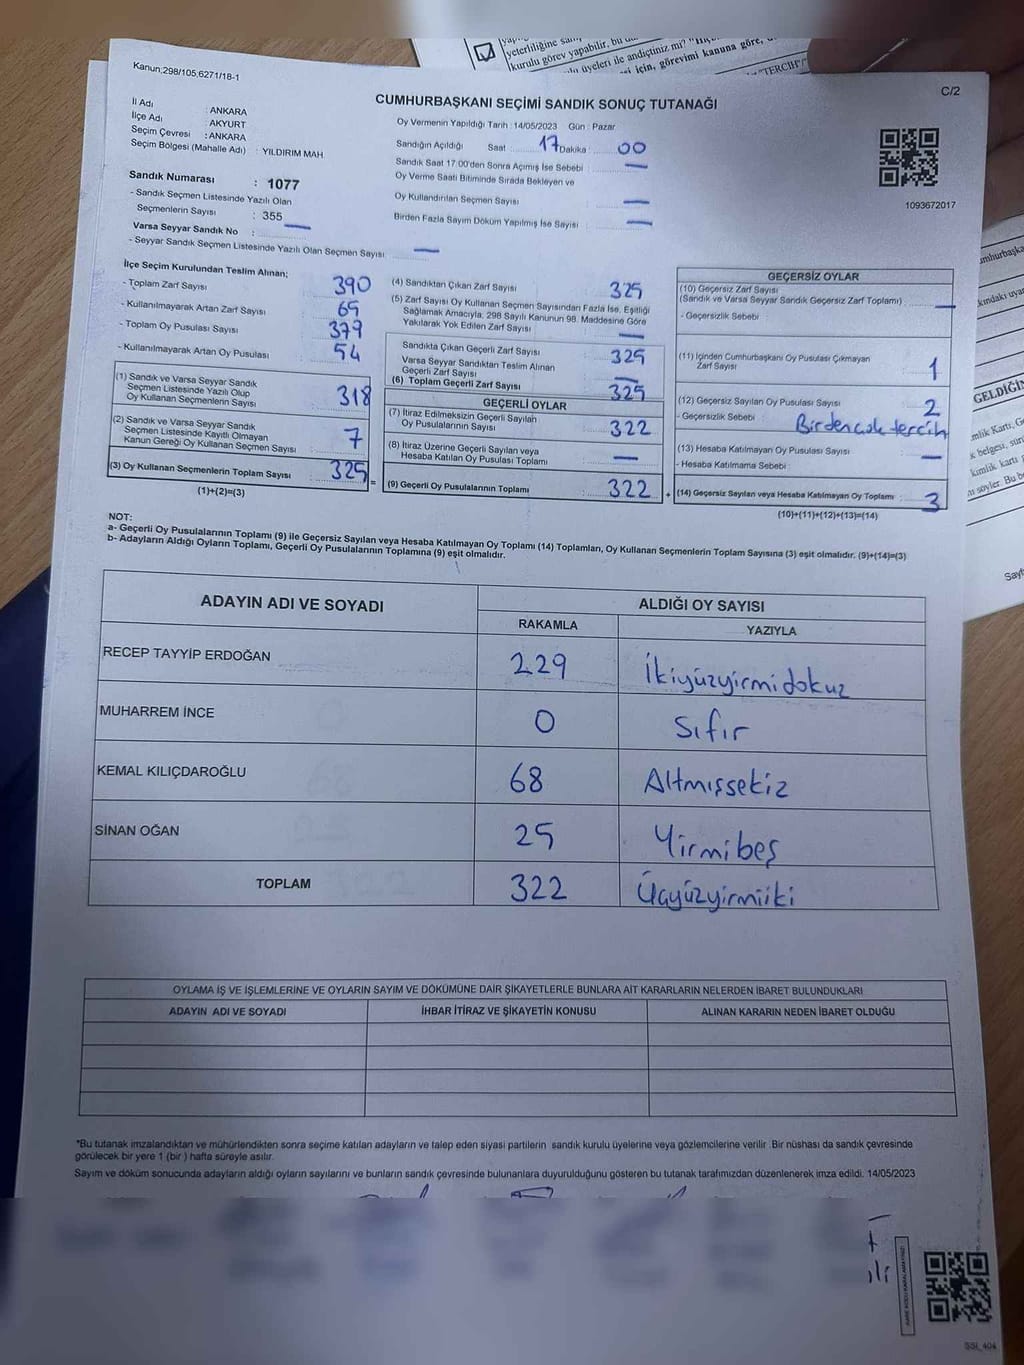 yeterliliğine
kurulu görev yapabilir, bu
üyeleri ile andiçtiniz mi?
için, görevimi kanuna göre,
"TERCİH"
Kanun;298/105,6271/18-1
C/2
CUMHURBAŞKANI SEÇİMİ SANDIK SONUÇ TUTANAĞI
İl Adı : ANKARA
İlçe Adı : AKYURT
Seçim Çevresi : ANKARA
Seçim Bölgesi (Mahalle Adı) : YILDIRIM MAH
Sandık Numarası : 1077
- Sandık Seçmen Listesinde Yazılı Olan
Seçmenlerin Sayısı : 355
Varsa Seyyar Sandık No : —
- Seyyar Sandık Seçmen Listesinde Yazılı Olan Seçmen Sayısı —
Oy Vermenin Yapıldığı Tarih : 14/05/2023 Gün : Pazar
Sandığın Açıldığı Saat : 17 Dakika : 00
Sandık Saat 17.00'den Sonra Açımış İse Sebebi : —
Oy Verme Saati Bitiminde Sırada Bekleyen ve
Oy Kullandırılan Seçmen Sayısı : —
Birden Fazla Sayım Döküm Yapılmış İse Sayısı : —
1093672017
İlçe Seçim Kurulundan Teslim Alınan;
- Toplam Zarf Sayısı : 390
- Kullanılmayarak Artan Zarf Sayısı : 65
- Toplam Oy Pusulası Sayısı : 379
- Kullanılmayarak Artan Oy Pusulası : 54
(1) Sandık ve Varsa Seyyar Sandık
Seçmen Listesinde Yazılı Olup
Oy Kullanan Seçmenlerin Sayısı : 318
(2) Sandık ve Varsa Seyyar Sandık
Seçmen Listesinde Kayıtlı Olmayan
Kanun Gereği Oy Kullanan Seçmen Sayısı : 7
(3) Oy Kullanan Seçmenlerin Toplam Sayısı : 325
(1)+(2)=(3)
(4) Sandıktan Çıkan Zarf Sayısı : 325
(5) Zarf Sayısı Oy Kullanan Seçmen Sayısından Fazla İse, Eşitliği
Sağlamak Amacıyla, 298 Sayılı Kanunun 98. Maddesine Göre
Yakılarak Yok Edilen Zarf Sayısı : —
Sandıkta Çıkan Geçerli Zarf Sayısı : 325
Varsa Seyyar Sandıktan Teslim Alınan
Geçerli Zarf Sayısı : —
(6) Toplam Geçerli Zarf Sayısı : 325
GEÇERLİ OYLAR
(7) İtiraz Edilmeksizin Geçerli Sayılan
Oy Pusulalarının Sayısı : 322
(8) İtiraz Üzerine Geçerli Sayılan veya
Hesaba Katılan Oy Pusulası Toplamı : —
(9) Geçerli Oy Pusulalarının Toplamı : 322
=
+
GEÇERSİZ OYLAR
(10) Geçersiz Zarf Sayısı
(Sandık ve Varsa Seyyar Sandık Geçersiz Zarf Toplamı) : —
- Geçersizlik Sebebi :
(11) İçinden Cumhurbaşkanı Oy Pusulası Çıkmayan
Zarf Sayısı : 1
(12) Geçersiz Sayılan Oy Pusulası Sayısı : 2
- Geçersizlik Sebebi : Birden çok tercih
(13) Hesaba Katılmayan Oy Pusulası Sayısı : —
- Hesaba Katılmama Sebebi :
(14) Geçersiz Sayılan veya Hesaba Katılmayan Oy Toplamı : 3
(10)+(11)+(12)+(13)=(14)
NOT:
a- Geçerli Oy Pusulalarının Toplamı (9) ile Geçersiz Sayılan veya Hesaba Katılmayan Oy Toplamı (14) Toplamları, Oy Kullanan Seçmenlerin Toplam Sayısına (3) eşit olmalıdır. (9)+(14)=(3)
b- Adayların Aldığı Oyların Toplamı, Geçerli Oy Pusulalarının Toplamına (9) eşit olmalıdır.
ADAYIN ADI VE SOYADI
ALDIĞI OY SAYISI
RAKAMLA YAZIYLA
RECEP TAYYİP ERDOĞAN 229 İkiyüzyirmidokuz
MUHARREM İNCE 0 Sıfır
KEMAL KILIÇDAROĞLU 68 Altmışsekiz
SİNAN OĞAN 25 Yirmibeş
TOPLAM 322 Üçyüzyirmiiki
OYLAMA İŞ VE İŞLEMLERİNE VE OYLARIN SAYIM VE DÖKÜMÜNE DAİR ŞİKAYETLERLE BUNLARA AİT KARARLARIN NELERDEN İBARET BULUNDUKLARI
ADAYIN ADI VE SOYADI İHBAR İTİRAZ VE ŞİKAYETİN KONUSU ALINAN KARARIN NEDEN İBARET OLDUĞU
*Bu tutanak imzalandıktan ve mühürlendikten sonra seçime katılan adayların ve talep eden siyasi partilerin sandık kurulu üyelerine veya gözlemcilerine verilir. Bir nüshası da sandık çevresinde
görülecek bir yere 1 (bir ) hafta süreyle asılır.
Sayım ve döküm sonucunda adayların aldığı oyların sayılarını ve bunların sandık çevresinde bulunanlara duyurulduğunu gösteren bu tutanak tarafımızdan düzenlenerek imza edildi. 14/05/2023
SSI_404